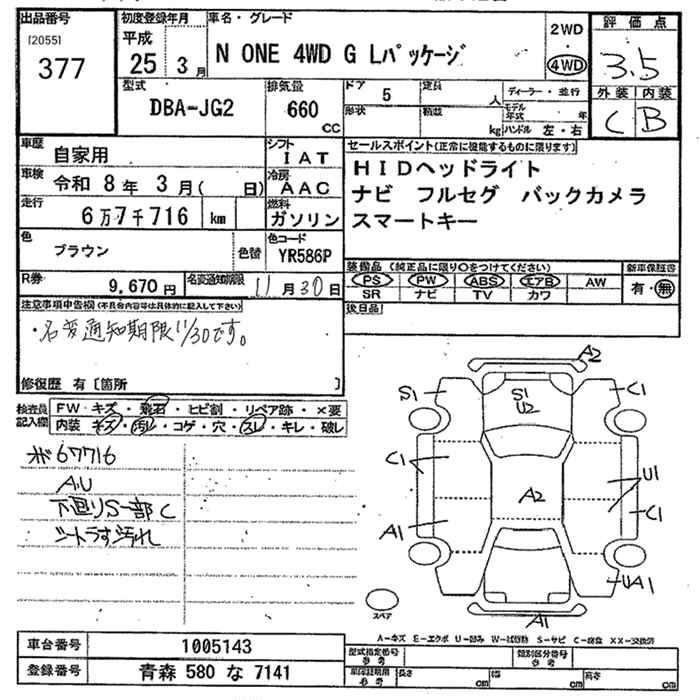 出品番号
[2055]
377
初度登録年月
平成
25 3月
車名・グレード
N ONE 4WD G Lパッケージ
2WD
・
4WD
評価点
3.5
外装 内装
C B
型式
DBA-JG2
排気量
660
CC
ドア 5
定員
人
形状
積載
kg
ディーラー・並行
モデル年式 年
ハンドル 左・右
車歴
自家用
シフト
IAT
車検
令和 8年 3月( 日)
冷房
AAC
走行
6万7千716 km
燃料
ガソリン
色
ブラウン
色替
色コード
YR586P
R券
9,670円
名変通知期限
11月30日
セールスポイント(正常に機能するものに限ります)
HIDヘッドライト
ナビ フルセグ バックカメラ
スマートキー
装備品(純正品に限り○をつけてください)
新車保証書
PS PW ABS エアB AW
SR ナビ TV カワ
有・無
後日品
注意事項申告欄(不具合内容等は具体的に記入して下さい)
・名変通知期限11/30です。
修復歴 有〔箇所 〕
検査員記入欄
FW・キズ・飛石・ヒビ割・リペア跡・×要
内装 キズ・汚れ・コゲ・穴・スレ・キレ・破レ
メ67716
AU
下廻りS一部C
シートうす汚れ
A2
S1
C1
S1
U2
C1
U1
A2
A1
C1
UA1
A1
スペア
A-キズ E-エクボ U-凹み W-補修跡 S-サビ C-腐食 XX-交換済
車台番号
1005143
登録番号
青森 580 な 7141
型式指定番号
参考
類別区分番号
参考
車庫証明用
参考
長さ cm
幅 cm
高さ cm